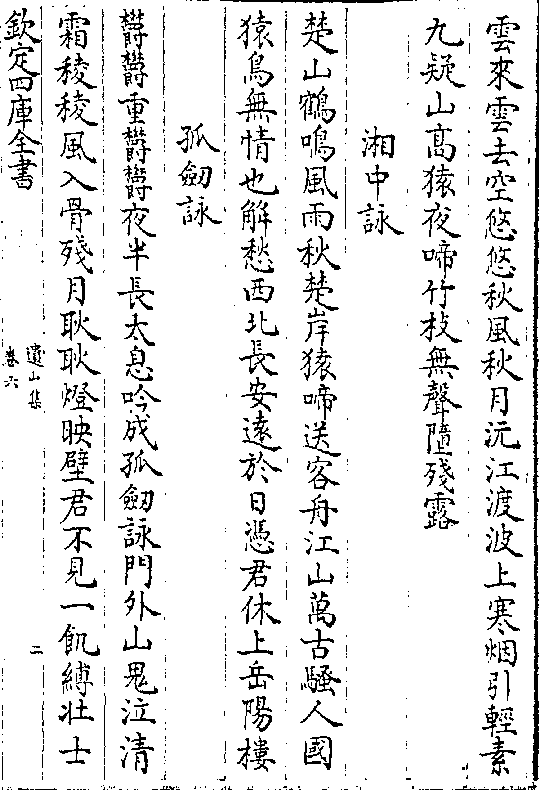 雲來雲去空悠悠秋風秋月沅江渡波上寒烟引輕素
九疑山高猿夜啼竹枝無聲墮殘露
湘中詠
楚山鶴鳴風雨秋楚岸猿啼送客舟江山萬古騷人國
猿鳥無情也解愁西北長安逺於日憑君休上岳陽樓
孤劒詠
鬱鬱重鬱鬱夜半長太息吟成孤劒詠門外山鬼泣清
霜稜稜風入骨殘月耿耿燈映壁君不見一飢縛壯士
欽定四庫全書
遺山集
卷六
二